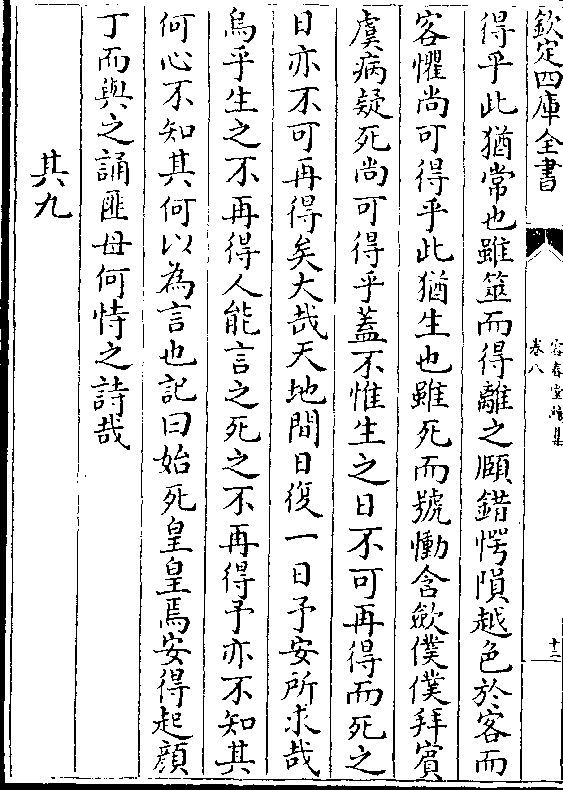 欽定四庫全書
容春堂續集
卷八
十二
得乎此猶常也雖筮而得離之頤錯愕隕越色於客而
客懼尚可得乎此猶生也雖死而號慟含歛僕僕拜賓
虞病疑死尚可得乎蓋不惟生之日不可再得而死之
日亦不可再得矣大哉天地間日復一日予安所求哉
烏乎生之不再得人能言之死之不再得予亦不知其
何心不知其何以為言也記曰始死皇皇焉安得起顔
丁而與之誦匪母何恃之詩哉
其九